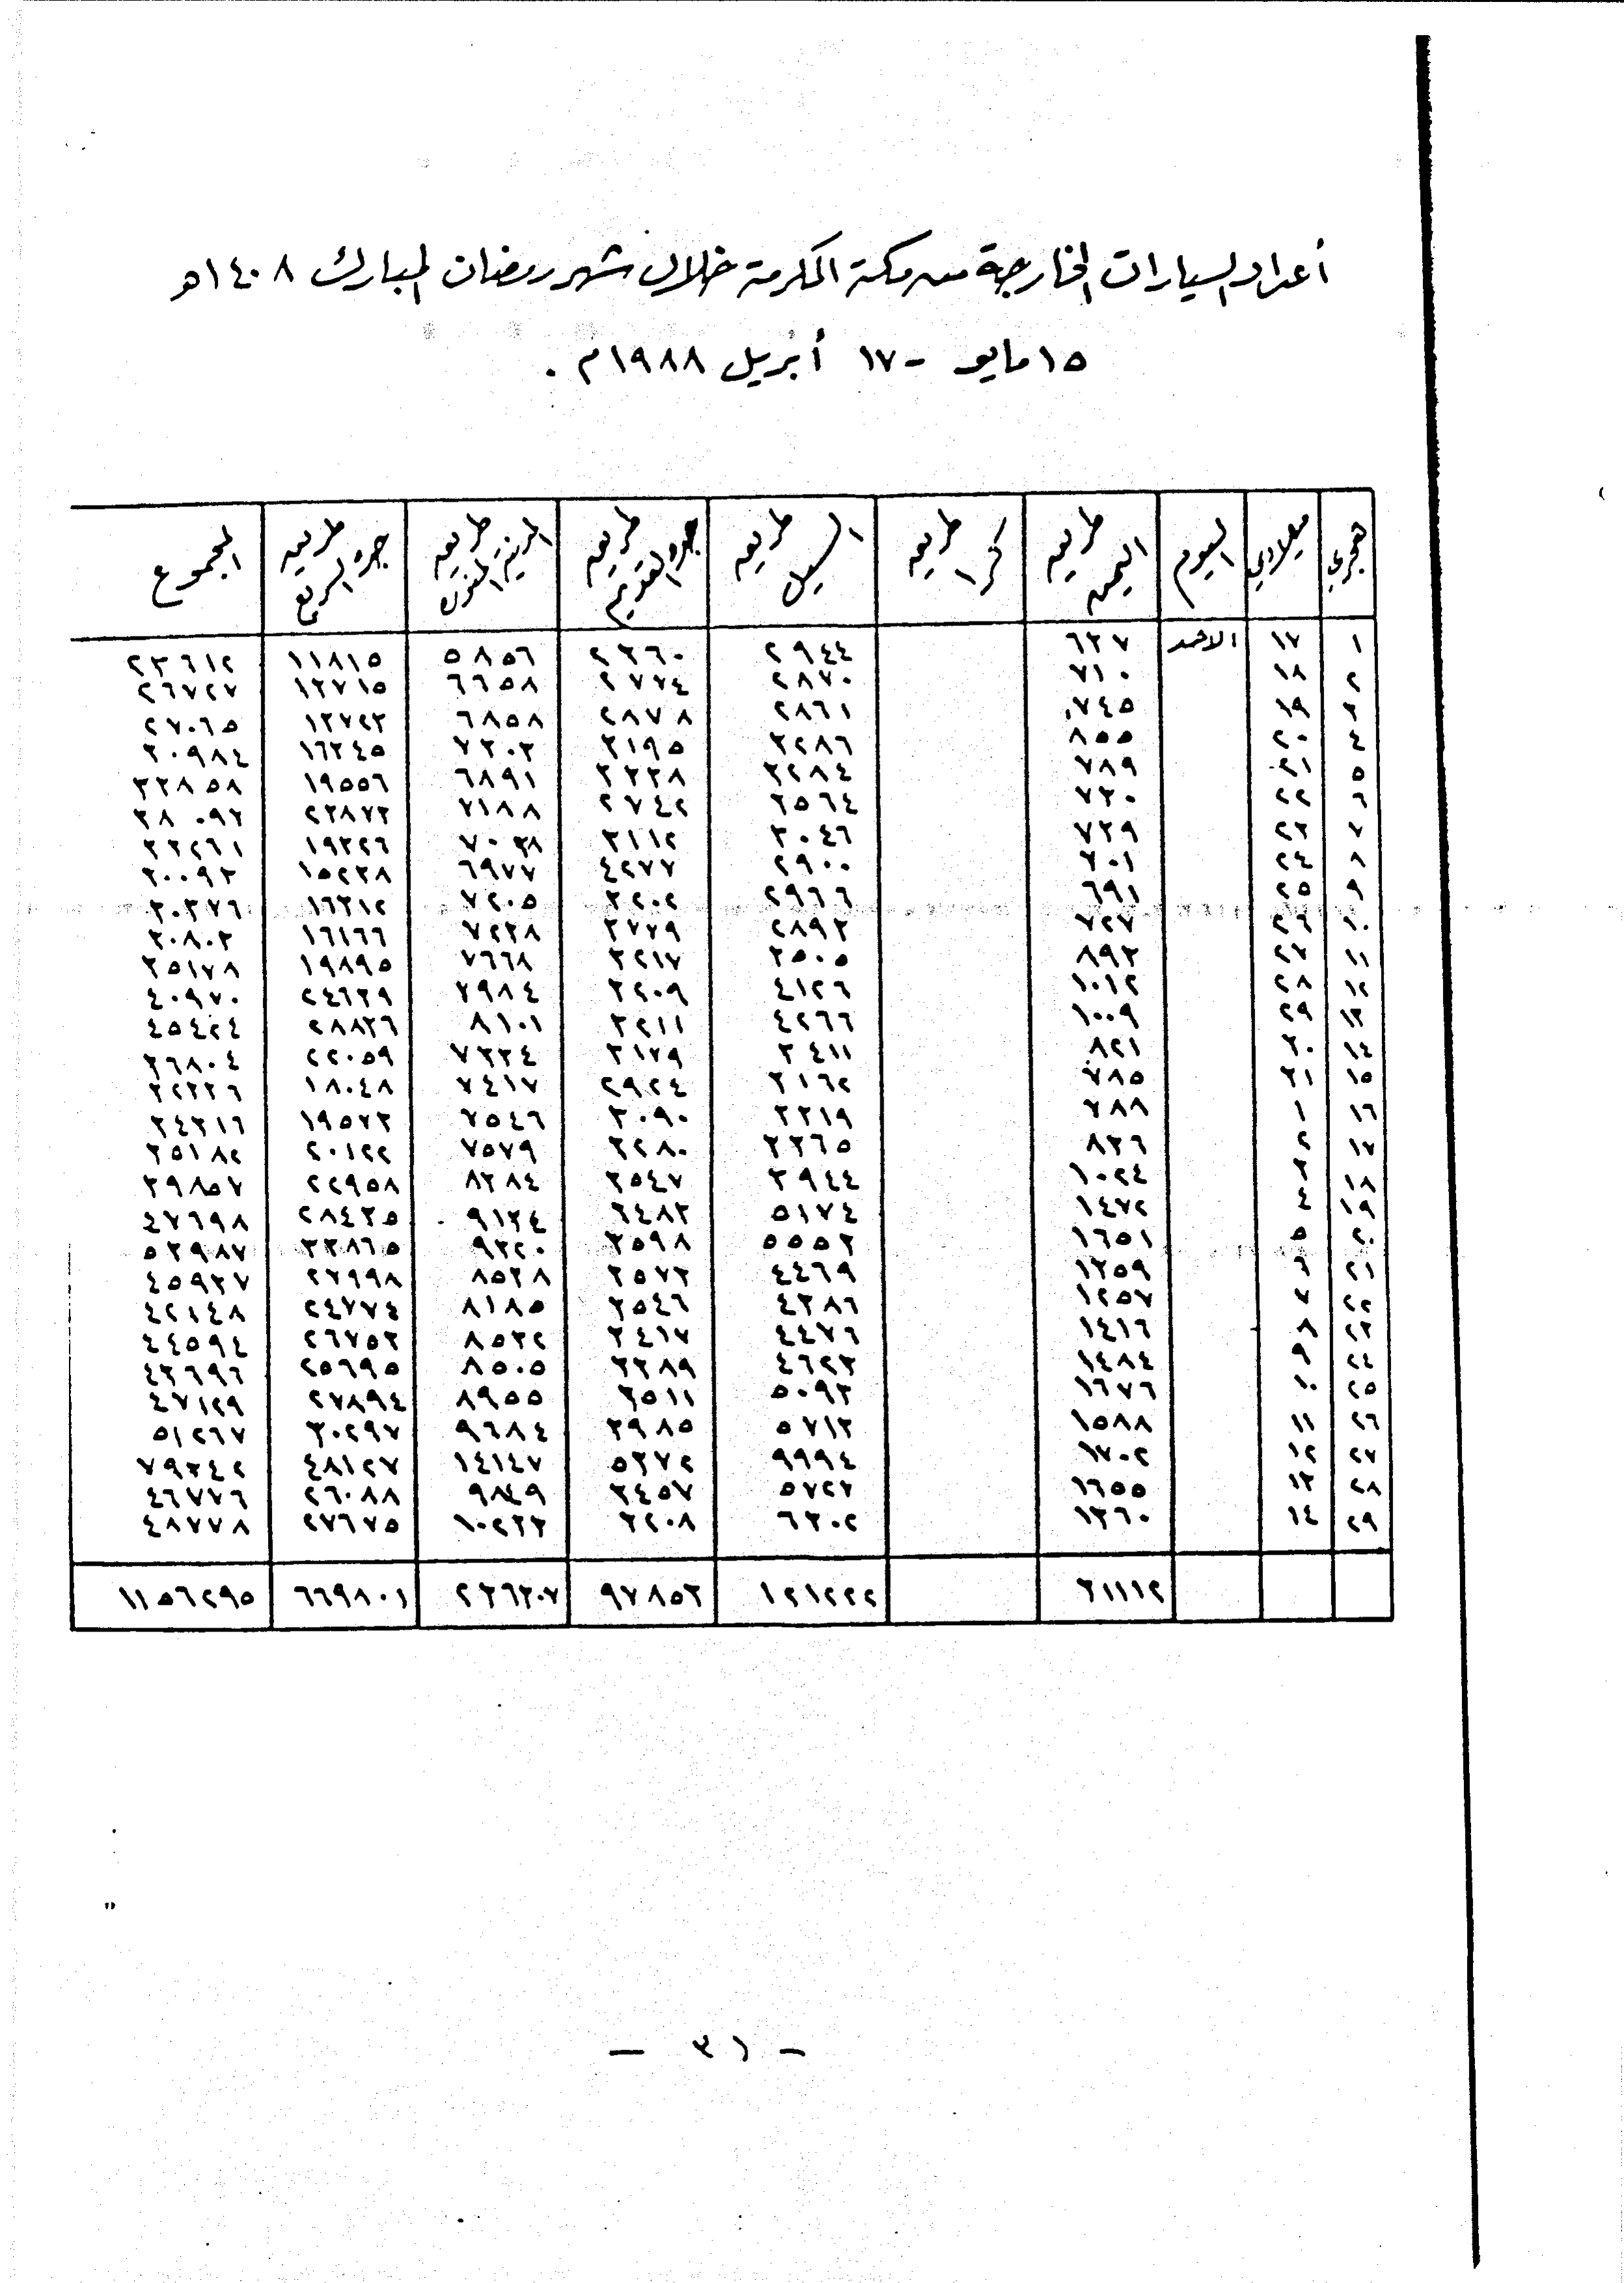 أعداد السيارات الخارجة من مكة المكرمة خلال شهر رمضان المبارك ١٤٠٨هـ
١٥ مايو - ١٧ أبريل ١٩٨٨م .
هجري ميلادي اليوم طريق اليمن طريق كرا طريق السيل طريق جده القديم طريق المدينة المنورة طريق جده السريع المجموع
١ ١٧ الاحد ٦٣٧ ٢٩٤٤ ٢٣٦٠ ٥٨٥٦ ١١٨١٥ ٢٣٦١٢
٢ ١٨ ٧١٠ ٢٨٧٠ ٢٧٧٤ ٦٦٥٨ ١٣٧١٥ ٢٦٧٢٧
٣ ١٩ ٧٤٥ ٢٨٦١ ٢٨٧٨ ٦٨٥٨ ١٣٧٢٣ ٢٧٠٦٥
٤ ٢٠ ٨٥٥ ٣٢٨٦ ٣١٩٥ ٧٣٠٣ ١٦٣٤٥ ٣٠٩٨٤
٥ ٢١ ٧٨٩ ٣٢٨٤ ٣٣٣٨ ٦٨٩١ ١٩٥٥٦ ٣٣٨٥٨
٦ ٢٢ ٧٣٠ ٣٥٦٤ ٢٧٤٢ ٧١٨٨ ٢٣٨٧٣ ٣٨٠٩٧
٧ ٢٣ ٧٣٩ ٣٠٤٦ ٣١١٢ ٧٠٣٨ ١٩٣٢٦ ٣٣٢٦١
٨ ٢٤ ٧٠١ ٢٩٠٠ ٤٢٧٧ ٦٩٧٧ ١٥٢٣٨ ٣٠٠٩٣
٩ ٢٥ ٦٩١ ٢٩٦٦ ٣٢٠٢ ٧٢٠٥ ١٦٣١٢ ٣٠٣٧٦
١٠ ٢٦ ٧٢٧ ٢٨٩٣ ٣٧٧٩ ٧٢٣٨ ١٦١٦٦ ٣٠٨٠٣
١١ ٢٧ ٨٩٣ ٣٥٠٥ ٣٢١٧ ٧٦٦٨ ١٩٨٩٥ ٣٥١٧٨
١٢ ٢٨ ١٠١٢ ٤١٢٦ ٣٢٠٩ ٧٩٨٤ ٢٤٦٣٩ ٤٠٩٧٠
١٣ ٢٩ ١٠٠٩ ٤٢٦٦ ٣٢١١ ٨١٠١ ٢٨٨٣٦ ٤٥٤٢٤
١٤ ٣٠ ٨٢١ ٣٤١١ ٣١٧٩ ٧٣٣٤ ٢٢٠٥٩ ٣٦٨٠٤
١٥ ٣١ ٧٨٥ ٣١٦٢ ٢٩٢٤ ٧٤١٧ ١٨٠٤٨ ٣٢٣٣٦
١٦ ١ ٧٨٨ ٣٣١٩ ٣٠٩٠ ٧٥٤٦ ١٩٥٧٣ ٣٤٣١٦
١٧ ٢ ٨٣٦ ٣٣٦٥ ٣٢٨٠ ٧٥٧٩ ٢٠١٢٢ ٣٥١٨٢
١٨ ٣ ١٠٢٤ ٣٩٤٤ ٣٥٤٧ ٨٣٨٤ ٢٢٩٥٨ ٣٩٨٥٧
١٩ ٤ ١٤٧٢ ٥١٧٤ ٣٤٨٣ ٩١٣٤ ٢٨٤٣٥ ٤٧٦٩٨
٢٠ ٥ ١٦٥١ ٥٥٥٣ ٣٥٩٨ ٩٣٢٠ ٣٣٨٦٥ ٥٣٩٨٧
٢١ ٦ ١٣٥٩ ٤٤٦٩ ٣٥٧٣ ٨٥٣٨ ٢٧٩٩٨ ٤٥٩٣٧
٢٢ ٧ ١٢٥٧ ٤٣٨٦ ٣٥٤٦ ٨١٨٥ ٢٤٧٧٤ ٤٢١٤٨
٢٣ ٨ ١٤١٦ ٤٤٧٦ ٣٤١٧ ٨٥٣٢ ٢٦٧٥٣ ٤٤٥٩٤
٢٤ ٩ ١٤٨٤ ٤٦٢٣ ٣٣٨٩ ٨٥٠٥ ٢٥٦٩٥ ٤٣٦٩٦
٢٥ ١٠ ١٦٧٦ ٥٠٩٣ ٣٥١١ ٨٩٥٥ ٢٧٨٩٤ ٤٧١٢٩
٢٦ ١١ ١٥٨٨ ٥٧١٣ ٣٩٨٥ ٩٦٨٤ ٣٠٢٩٧ ٥١٢٦٧
٢٧ ١٢ ١٧٠٢ ٩٩٩٤ ٥٣٧٢ ١٤١٤٧ ٤٨١٢٧ ٧٩٣٤٢
٢٨ ١٣ ١٦٥٥ ٥٧٢٧ ٣٤٥٧ ٩٨٤٩ ٢٦٠٨٨ ٤٦٧٧٦
٢٩ ١٤ ١٣٦٠ ٦٣٠٢ ٣٢٠٨ ١٠٢٣٣ ٢٧٦٧٥ ٤٨٧٧٨
٣١١١٢ ١٢١٢٢٢ ٩٧٨٥٣ ٢٣٦٣٠٧ ٦٦٩٨٠١ ١١٥٦٢٩٥
- ٣١ -